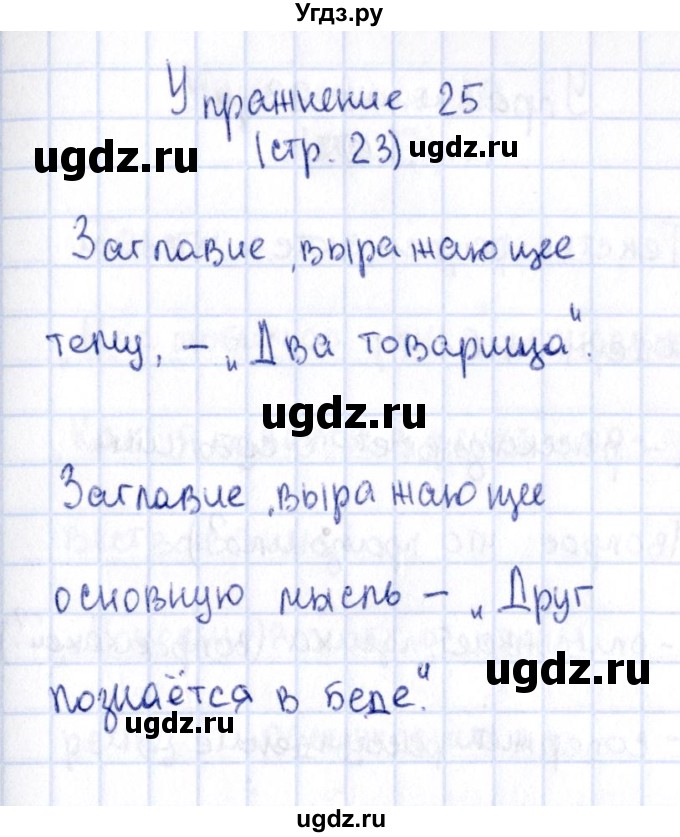 Угдз.ру
Упражнение 25
ugdz.ru (стр. 23) ugdz.ru
Заглавие, выражающее
тему, – „Два товарища".
ugdz.ru
Заглавие, выражающее
основную мысль – „Друг
ugdz.ru
познаётся в беде."
ugdz.ru
ugdz.ru